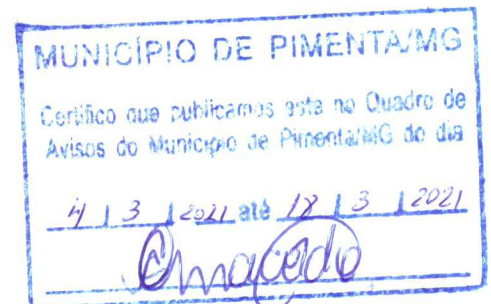 MUNICÍPIO DE PIMENTA/MG
Certifico que publicamos este no Quadro de
Avisos do Município de Pimenta/MG do dia
4 / 3 / 2021 até 18 / 3 / 2021
Macedo